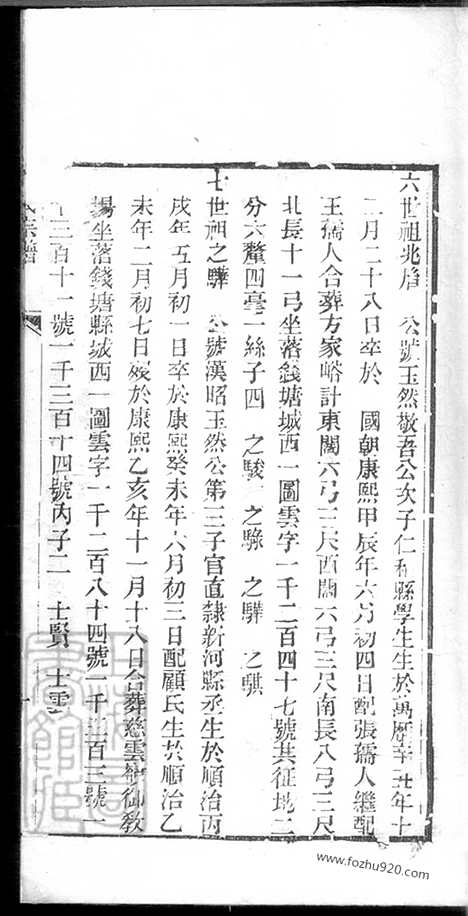 六世祖兆眉 公號玉然敬吾公次子仁和縣學生生於萬曆辛丑年十
二月二十八日卒於 國朝康熙甲辰年六月初四日配張孺人繼配
王孺人合葬方家峪計東闊六弓三尺西闊六弓三尺南長八弓三尺
北長十一弓坐落錢塘城西一圖雲字一千二百四十七號共征地二
分六釐四毫一絲子四 之駿 之騄 之驊 之騏
七世祖之驊 公號漢昭玉然公第三子官直隸新河縣丞生於順治丙
戌年五月初一日卒於康熙癸未年六月初三日配顧氏生於順治乙
未年二月初七日歿於康熙乙亥年十一月十八日合葬慈雲嶺御教
場坐落錢塘縣城西一圖雲字一千二百八十四號一千三百三號一
千三百十一號一千三百十四號內子二 士賢 士雲
宗譜
www.fozhu920.com